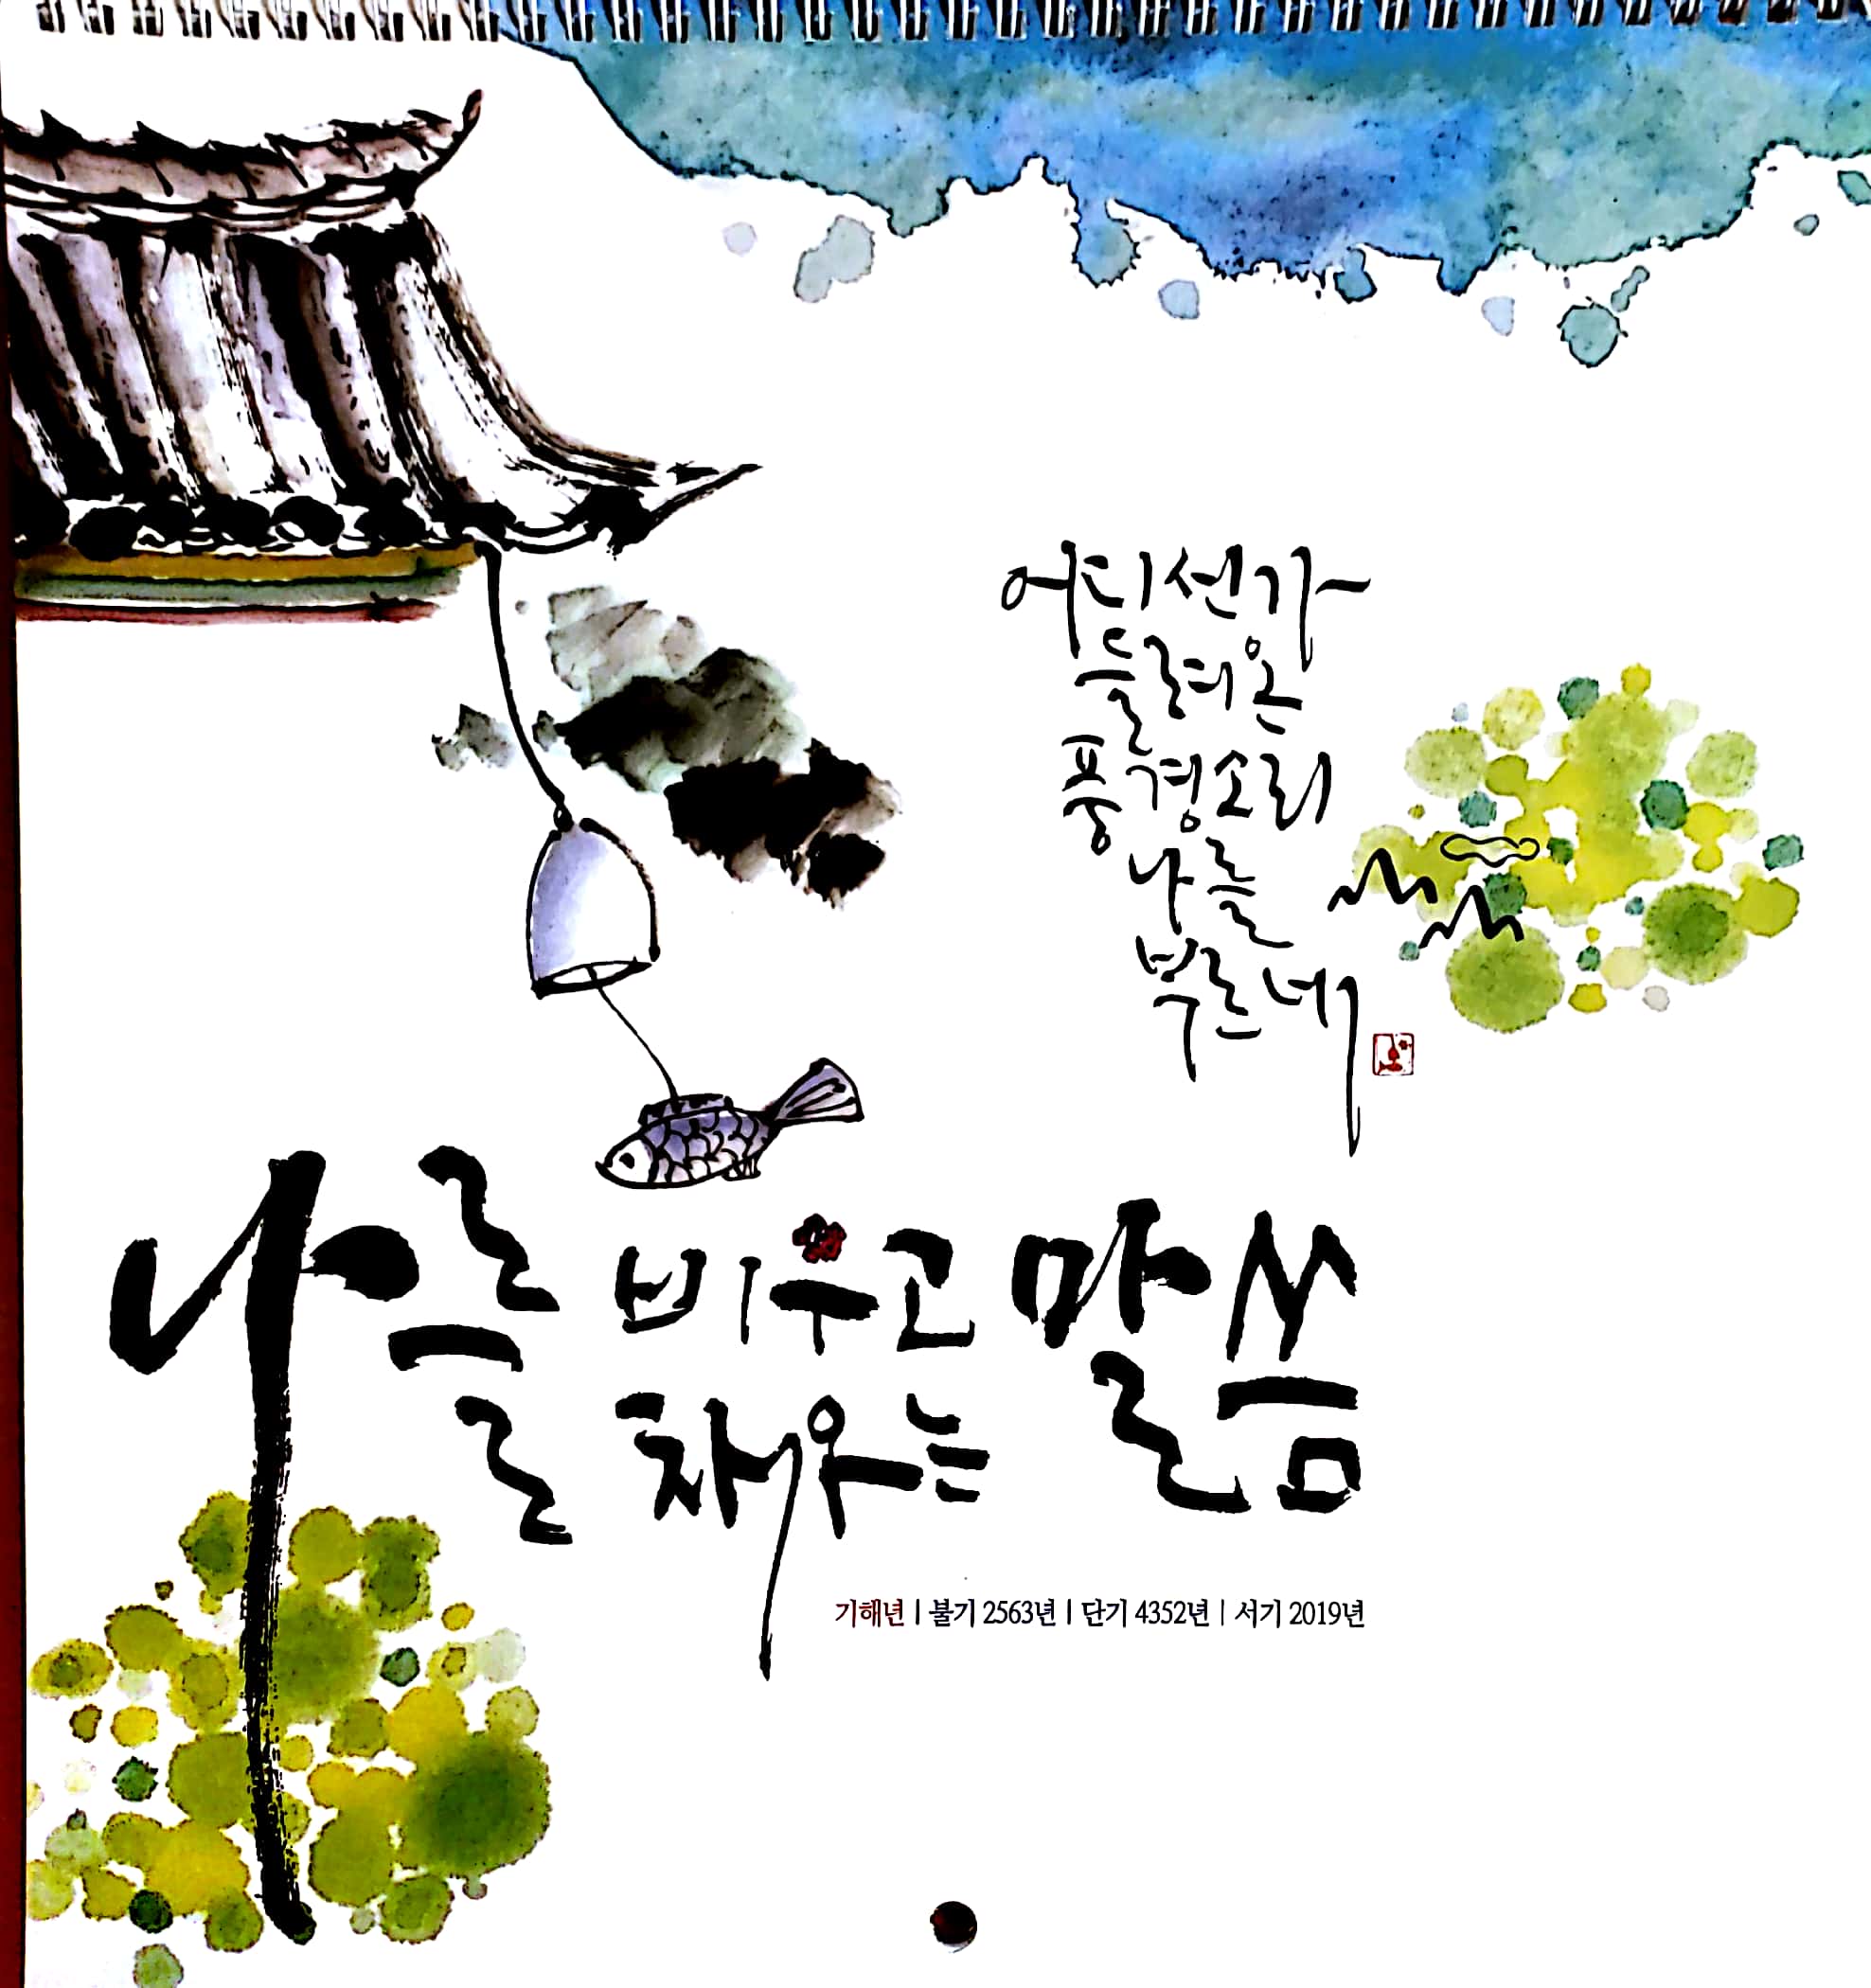 어디선가
들려온
풍경소리
나를
부르네
나를 비우고
나를 채우는
말씀
기해년 | 불기 2563년 | 단기 4352년 | 서기 2019년